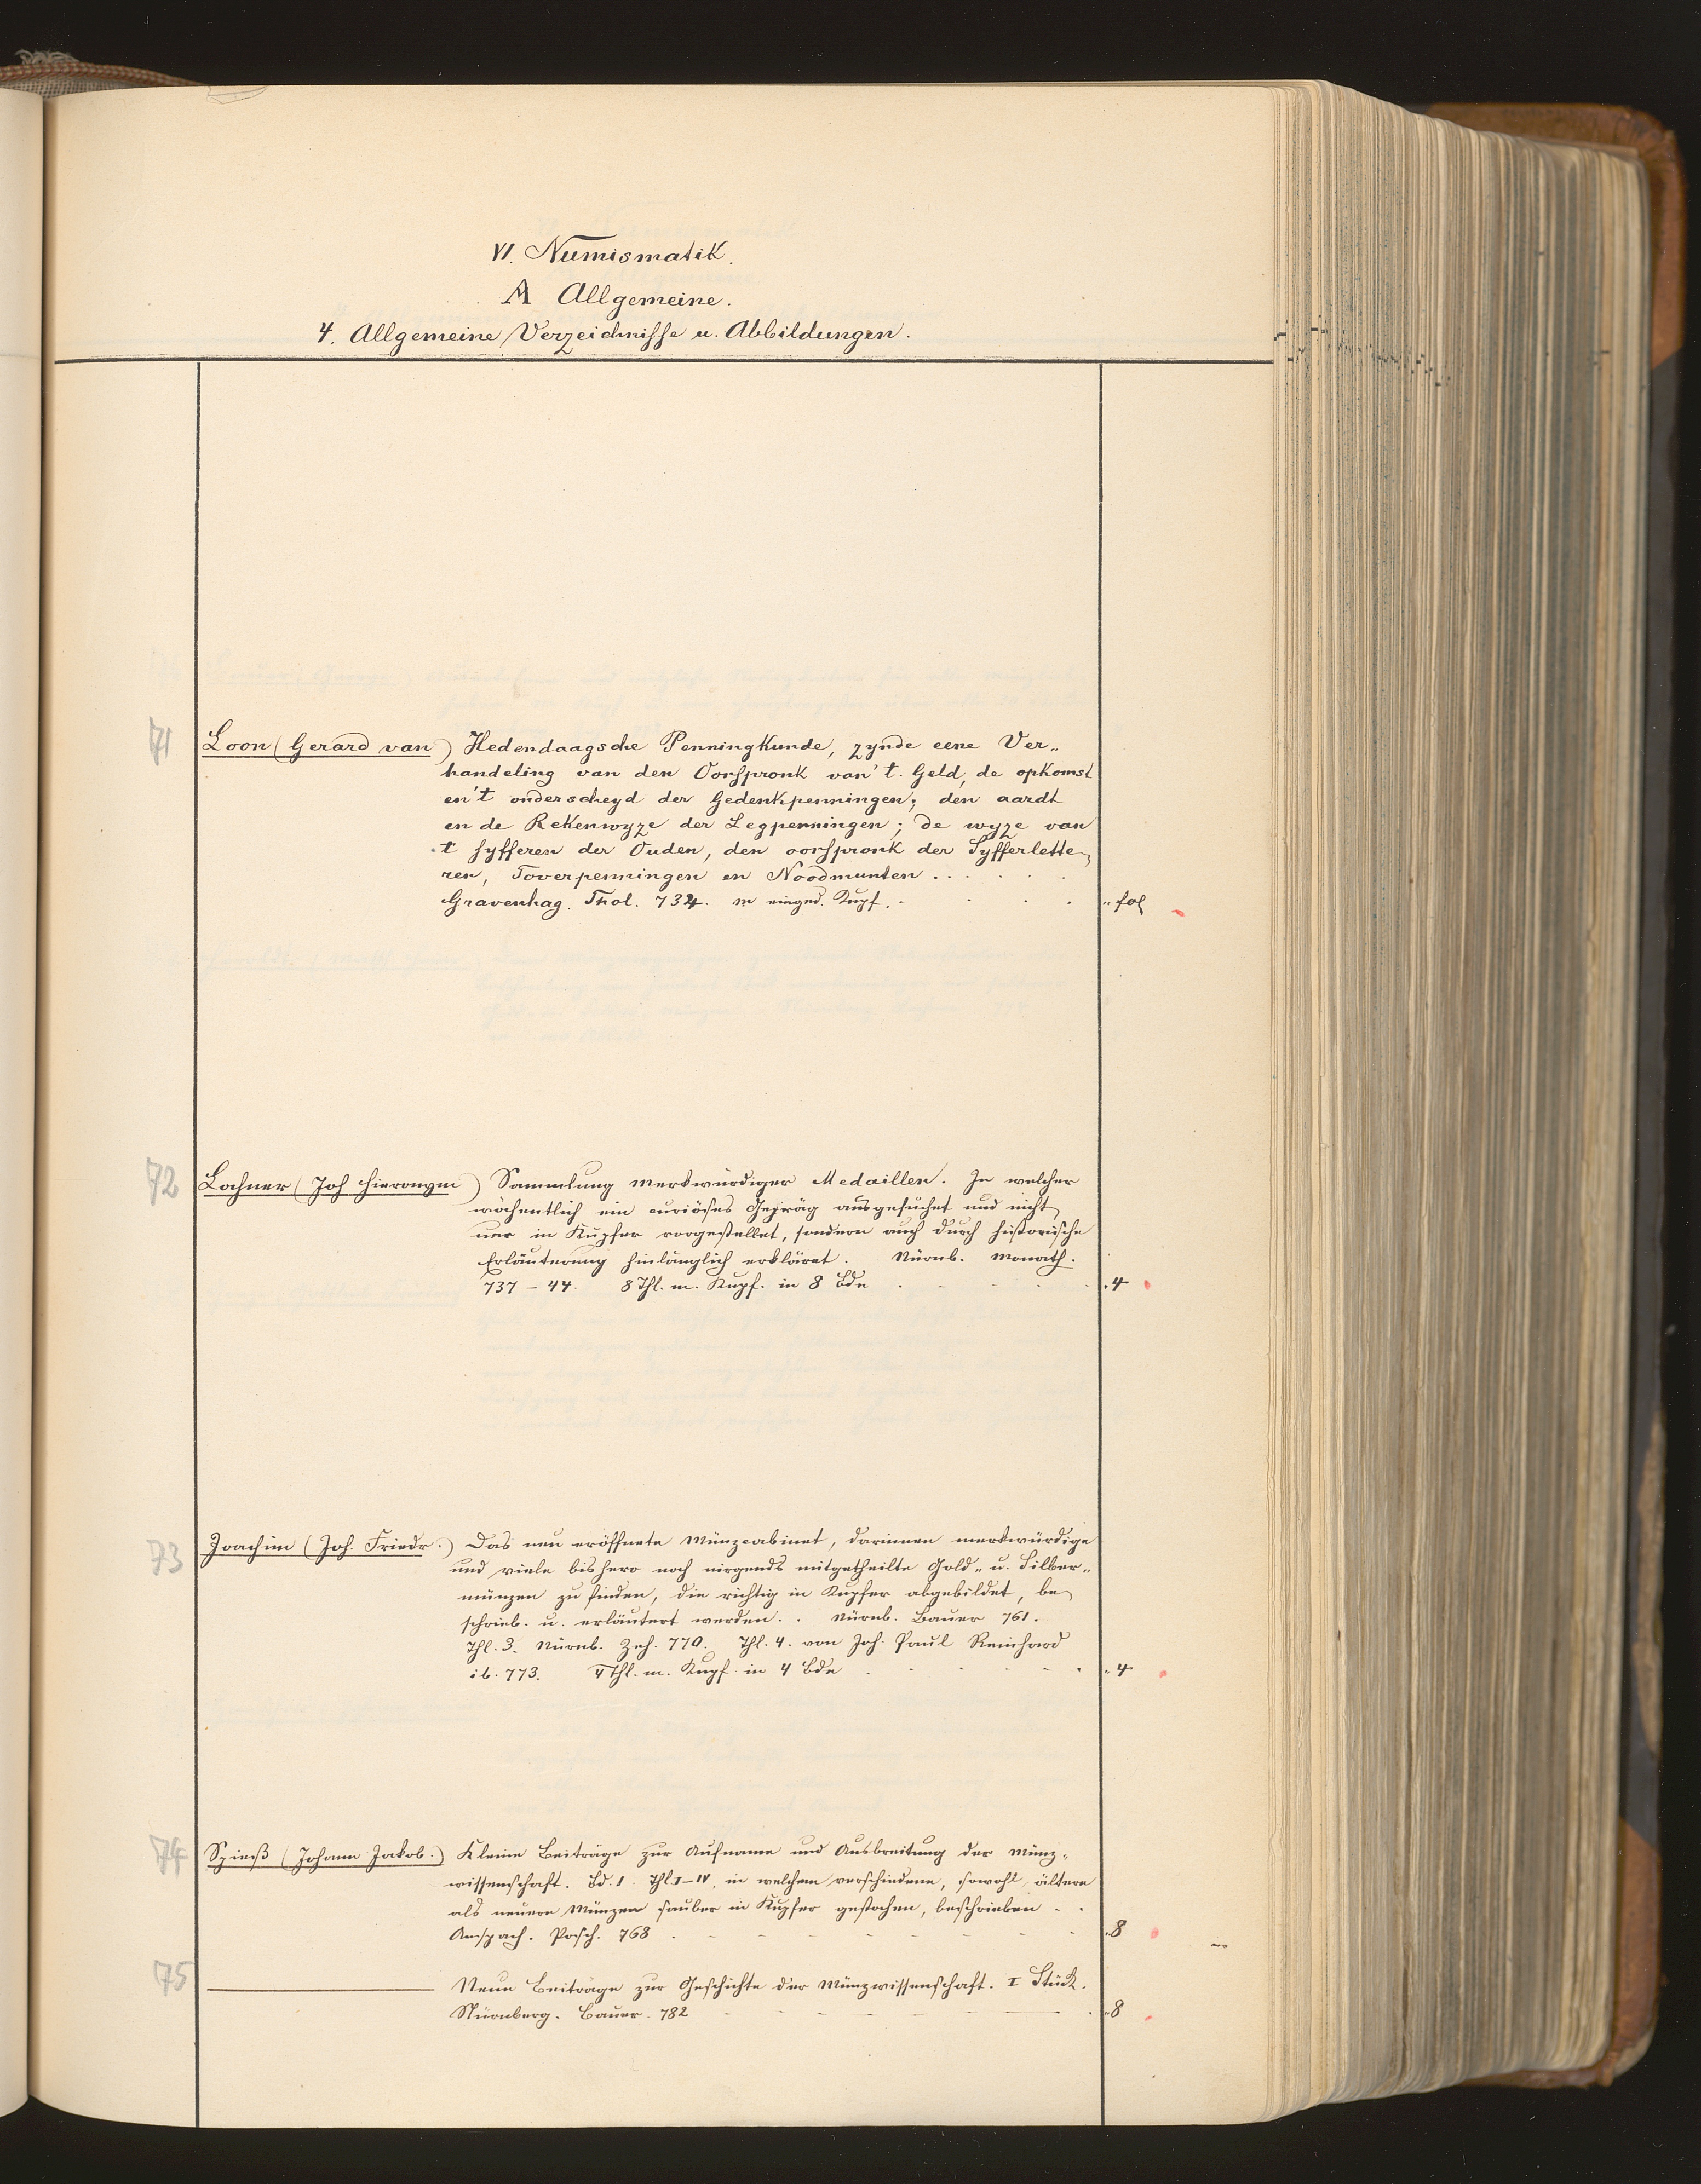 VI. Numismatik.
A Allgemeine.
4. Allgemeine Verzeichnisse u. Abbildungen.
71 Loon (Gerard van) Hedendaagsche Penningkunde, zynde eene Ver„
handeling van den Oorspronk van't Geld, de opkomst
en't onderscheyd der Gedenkpenningen; den aardt
en de Rekenwyze der Legpenningen; de wyze van
't syfferen der Ouden, den oorspronk der Syfferlette„
ren, Toverpenningen en Noodmunten . . . . .
Gravenhag. Thol. 734. m eingedr. Kupf. . . . . „ fol
72 Lochner (Joh Hieronym) Sammlung merkwürdiger Medaillen. In welcher
wöchentlich ein curiöses Gepräg ausgesuchet und nicht
nur in Kupfer vorgestellet, sondern auch durch historische
Erläuterung hinlänglich erkläret. Nürnb. Monath.
737 – 44. 8 Thl. m. Kupf. in 8 Bde . . . . „ 4
73 Joachim (Joh. Friedr.) Das neu eröffnete Münzcabinet, darinnen merkwürdige
und viele bishero noch nirgends mitgetheilte Gold- u. Silber„
münzen zu finden, die richtig in Kupfer abgebildet, be„
schrieb. u. erläutert werden. . Nürnb. Bauer 761.
Thl. 3. Nürnb. Zeh. 770. Thl. 4. von Joh. Paul Reinhard
ib. 773. 4 Thl. m. Kupf. in 4 Bde . . . . „ 4
74 Spieß (Johann Jakob.) Kleine Beiträge zur Aufname und Ausbreitung der Münz„
wissenschaft. Bd. 1. Thl I–IV, in welchem verschiedene, sowohl ältere
als neuere Münzen sauber in Kupfer gestochen, beschrieben . .
Anspach. Posch. 768 . . . . „ 8
75 ——— Neue Beiträge zur Geschichte der Münzwissenschaft. I Stück.
Nürnberg. Bauer. 782 . . . . „ 8